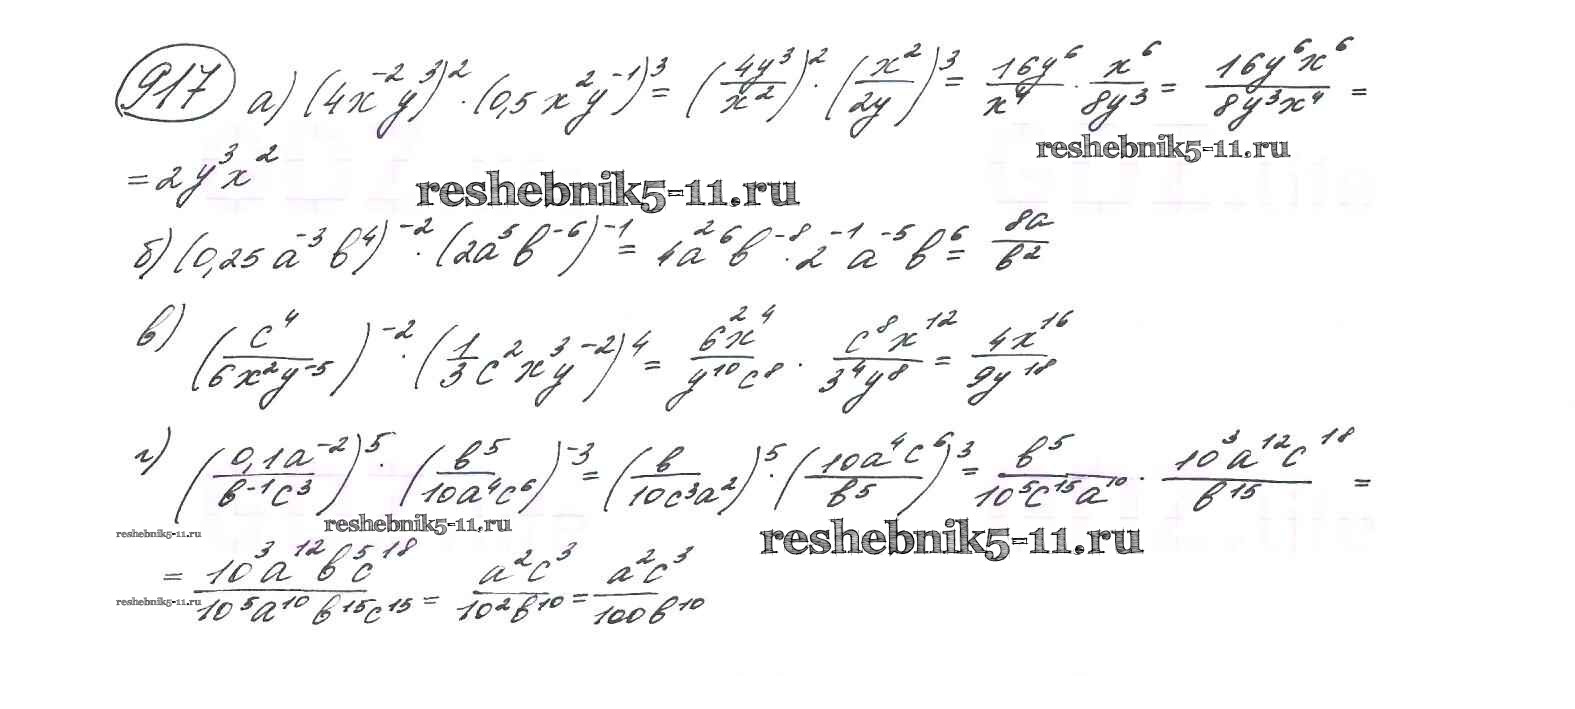 917 а) (4x⁻²y³)² · (0,5x²y⁻¹)³ = (4y³/x²)² · (x²/2y)³ = 16y⁶/x⁴ · x⁶/8y³ = 16y⁶x⁶/8y³x⁴ =
reshebnik5-11.ru
= 2y³x²
reshebnik5-11.ru
б) (0,25a⁻³b⁴)⁻² · (2a⁵b⁻⁶)⁻¹ = 4a²⁶b⁻⁸ · 2⁻¹a⁻⁵b⁶ = 8a/b²
в) (c⁴/6x²y⁻⁵)⁻² · (1/3c²x³y⁻²)⁴ = 6²x⁴/y¹⁰c⁸ · c⁸x¹²/3⁴y⁸ = 4x¹⁶/9y¹⁸
г) (0,1a⁻²/b⁻¹c³)⁵ · (b⁵/10a⁴c⁶)⁻³ = (b/10c³a²)⁵ · (10a⁴c⁶/b⁵)³ = b⁵/10⁵c¹⁵a¹⁰ · 10³a¹²c¹⁸/b¹⁵ =
reshebnik5-11.ru
reshebnik5-11.ru
reshebnik5-11.ru
= 10³a¹²b⁵c¹⁸/10⁵a¹⁰b¹⁵c¹⁵ = a²c³/10²b¹⁰ = a²c³/100b¹⁰
reshebnik5-11.ru